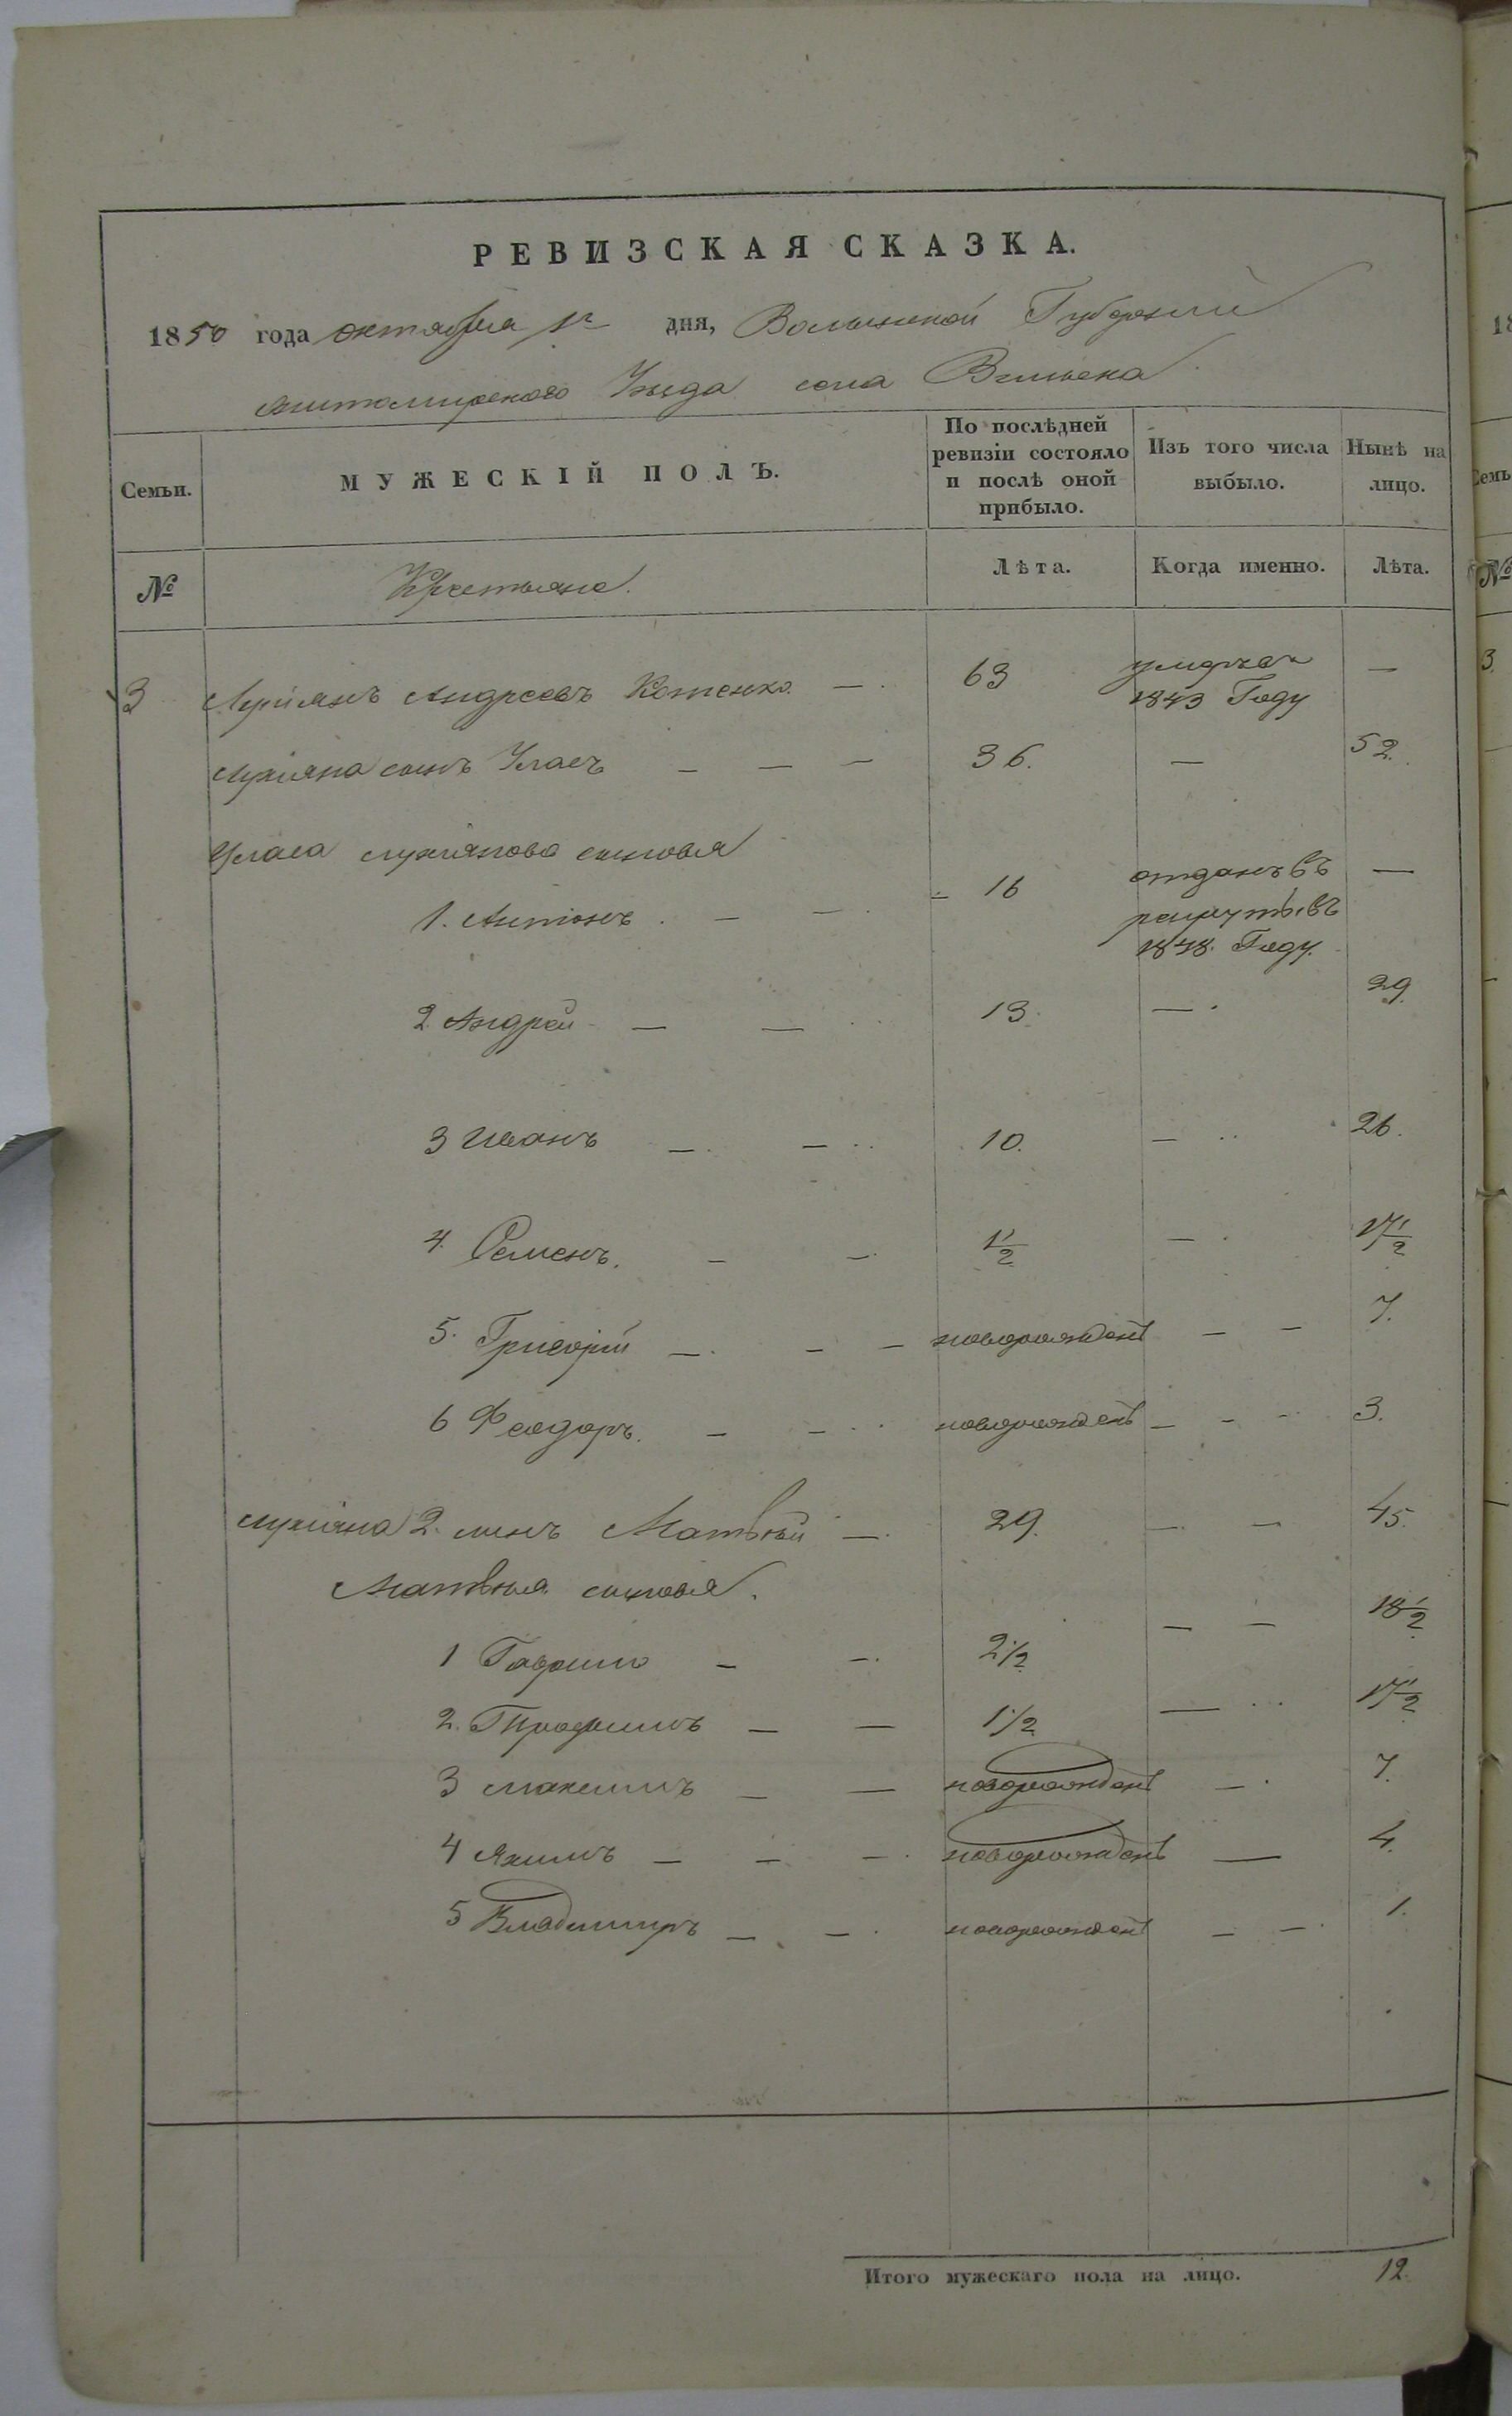 РЕВИЗСКАЯ СКАЗКА.
1850 года октября дня, Волынской Губернии
житомирского Уезда села Вильска
Семьи.
МУЖЕСКІЙ ПОЛЪ.
По послѣдней ревизіи состояло и послѣ оной прибыло.
Изъ того числа выбыло.
Нынѣ на лицо.
№ Крестьяне. Лѣта. Когда именно. Лѣта.
3 Лукіянъ Андреевъ Котенко — 63 умеръ въ 1843 Году —
Лукіяна сынъ Уласъ — — — 36. — 52.
Уласа лукіянова сыновья
1. Антонъ. — — 16 отданъ въ рекруты въ 1848. Году. —
2 Андрей — — 13. — 29.
3 Иванъ — — 10. — 26.
4. Семенъ. — — 1 1/2 — 17 1/2
5. Григорій — — — новорожденъ — — 7.
6 Феодоръ. — — новорожденъ — — - 3.
лукіяна 2. сынъ Матвѣй — 29. — — 45.
Матвѣя сыновья.
1 Гаврило — — 2 1/2 — — 18 1/2
2. Трофимъ — — 1 1/2 — 17 1/2
3 Максимъ — — новорожденъ — 7.
4 Якимъ — — — новорожденъ — 4.
5 Владимиръ — — новорожденъ — — 1.
Итого мужескаго пола на лицо. 12.
18
Семь
№
3.